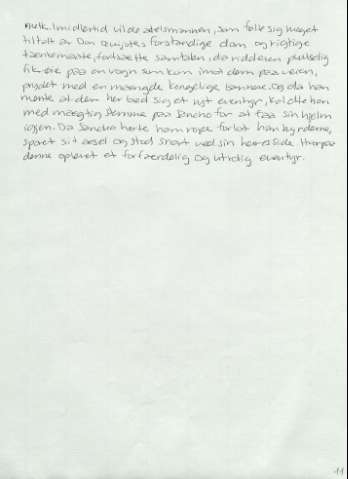 mælk. Imidlertid vilde adelsmanden, som følte sig meget
tiltalt av Don Quijotes forstandige dom og rigtige
tænkemaate, fortsætte samtalen, da ridderen pludselig
fik øie paa en vogn som kom imot dem paa veien,
prydet med en mængde kongelige bannere. Og da han
mente at dem her bød sig et nyt eventyr, kaldte han
med mægtig stemme paa Sancho for at faa sin hjelm
igjen. Da Sancho hørte ham rope forlot han hyrderne,
sporet sit æsel og stod snart ved sin herres side. Hvorpaa
denne oplevet et forfærdelig og utidig eventyr.
11